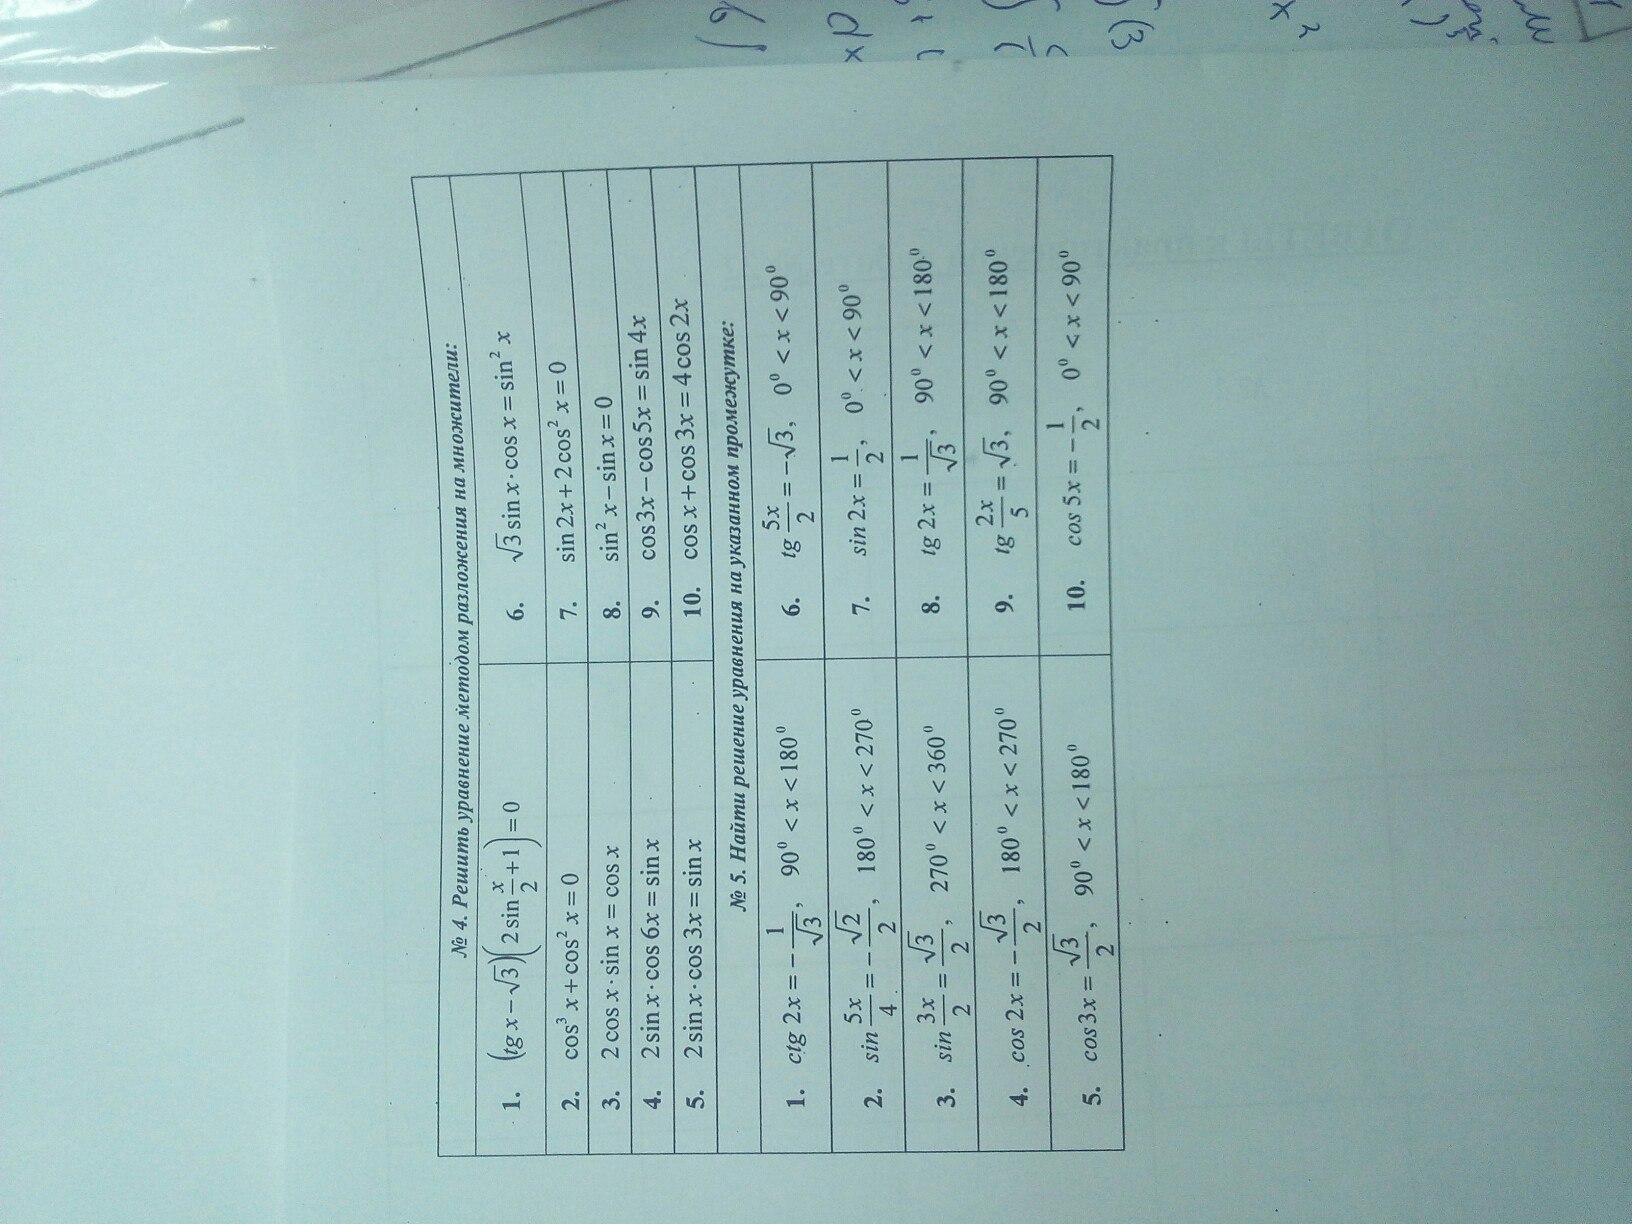 № 4. Решить уравнение методом разложения на множители:
1. (tg x − √3)(2 sin x/2 + 1) = 0
6. √3 sin x · cos x = sin² x
2. cos³ x + cos² x = 0
7. sin 2x + 2 cos² x = 0
3. 2 cos x · sin x = cos x
8. sin² x − sin x = 0
4. 2 sin x · cos 6x = sin x
9. cos 3x − cos 5x = sin 4x
5. 2 sin x · cos 3x = sin x
10. cos x + cos 3x = 4 cos 2x
№ 5. Найти решение уравнения на указанном промежутке:
1. ctg 2x = −1/√3, 90⁰ < x < 180⁰
6. tg 5x/2 = −√3, 0⁰ < x < 90⁰
2. sin 5x/4 = −√2/2, 180⁰ < x < 270⁰
7. sin 2x = 1/2, 0⁰ < x < 90⁰
3. sin 3x/2 = √3/2, 270⁰ < x < 360⁰
8. tg 2x = 1/√3, 90⁰ < x < 180⁰
4. cos 2x = −√3/2, 180⁰ < x < 270⁰
9. tg 2x/5 = √3, 90⁰ < x < 180⁰
5. cos 3x = √3/2, 90⁰ < x < 180⁰
10. cos 5x = −1/2, 0⁰ < x < 90⁰
dx
x²